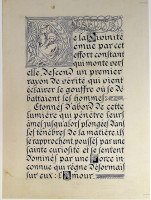 De la Divinité
émue par cet
effort constant
qui monte vers
elle, descend un premier
rayon de vérité qui vient
éclairer le gouffre où se dé-
battaient ses hommes.
Étonnés d'abord de cette
lumière qui pénètre leurs
âmes jusqu'alors plongées dans
les ténèbres de la matière, ils
se rapprochent, poussés par une
sainte curiosité et se sentent
dominés par une Force in-
connue qui règne désormais
sur eux : l'Amour.